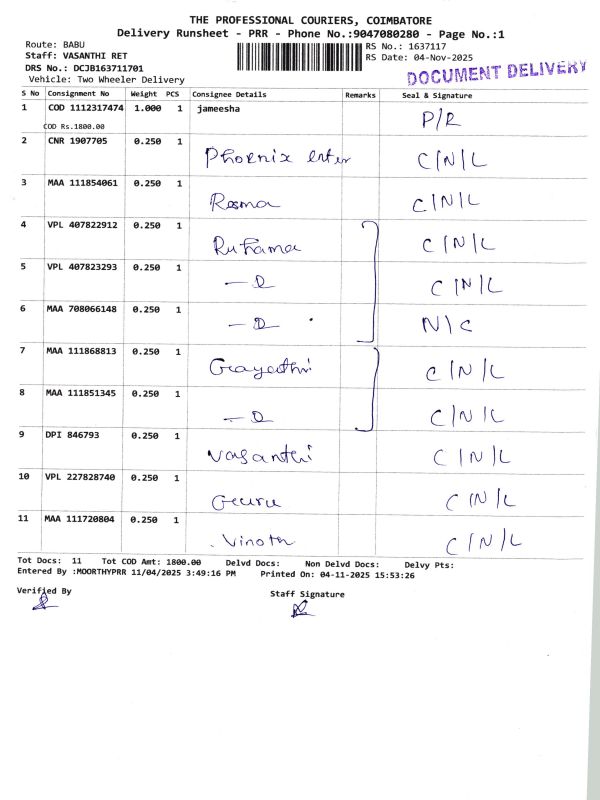 THE PROFESSIONAL COURIERS, COIMBATORE
Delivery Runsheet - PRR - Phone No.:9047080280 - Page No.:1
Route: BABU
RS No.: 1637117
Staff: VASANTHI RET
RS Date: 04-Nov-2025
DRS No.: DCJB163711701
DOCUMENT DELIVERY
Vehicle: Two Wheeler Delivery
S No Consignment No Weight PCS Consignee Details Remarks Seal & Signature
1 COD 1112317474 1.000 1 jameesha P/R
COD Rs.1800.00
2 CNR 1907705 0.250 1 Phoenix enter C/N/L
3 MAA 111854061 0.250 1 Rosma C/N/L
4 VPL 407822912 0.250 1 Ruthama C/N/L
5 VPL 407823293 0.250 1 C/N/L
6 MAA 708066148 0.250 1 N/C
7 MAA 111868813 0.250 1 Gayathri C/N/L
8 MAA 111851345 0.250 1 C/N/L
9 DPI 846793 0.250 1 Vasanthi C/N/L
10 VPL 227828740 0.250 1 C/N/L
11 MAA 111720804 0.250 1 Vinoth C/N/L
Tot Docs: 11 Tot COD Amt: 1800.00 Delvd Docs: Non Delvd Docs: Delvy Pts:
Entered By :MOORTHYPRR 11/04/2025 3:49:16 PM Printed On: 04-11-2025 15:53:26
Verified By
Staff Signature